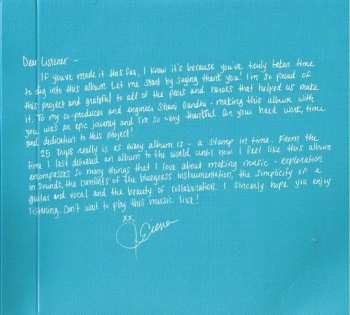 Dear Listener -
If you've made it this far, I know it's because you've truly taken time
to dig into this album. Let me start by saying thank you! I'm so proud of
this project and grateful to all of the and that helped us make
it. To my co-producer and engineer Shani Gandhi - making this album with
you was an epic journey and I'm so very thankful for your hard work, time
and dedication to this project!
25 Trips really is as many album is - a stamp in time. From the
time I last debuted an album to the world until now I feel like this album
encompasses so many things that I love about making music - exploration
in sounds, the comforts of the bluegrass instrumentation, the simplicity of a
guitar and vocal and the beauty of collaboration. I sincerely hope you enjoy
listening. Can't wait to play this music live!
xx